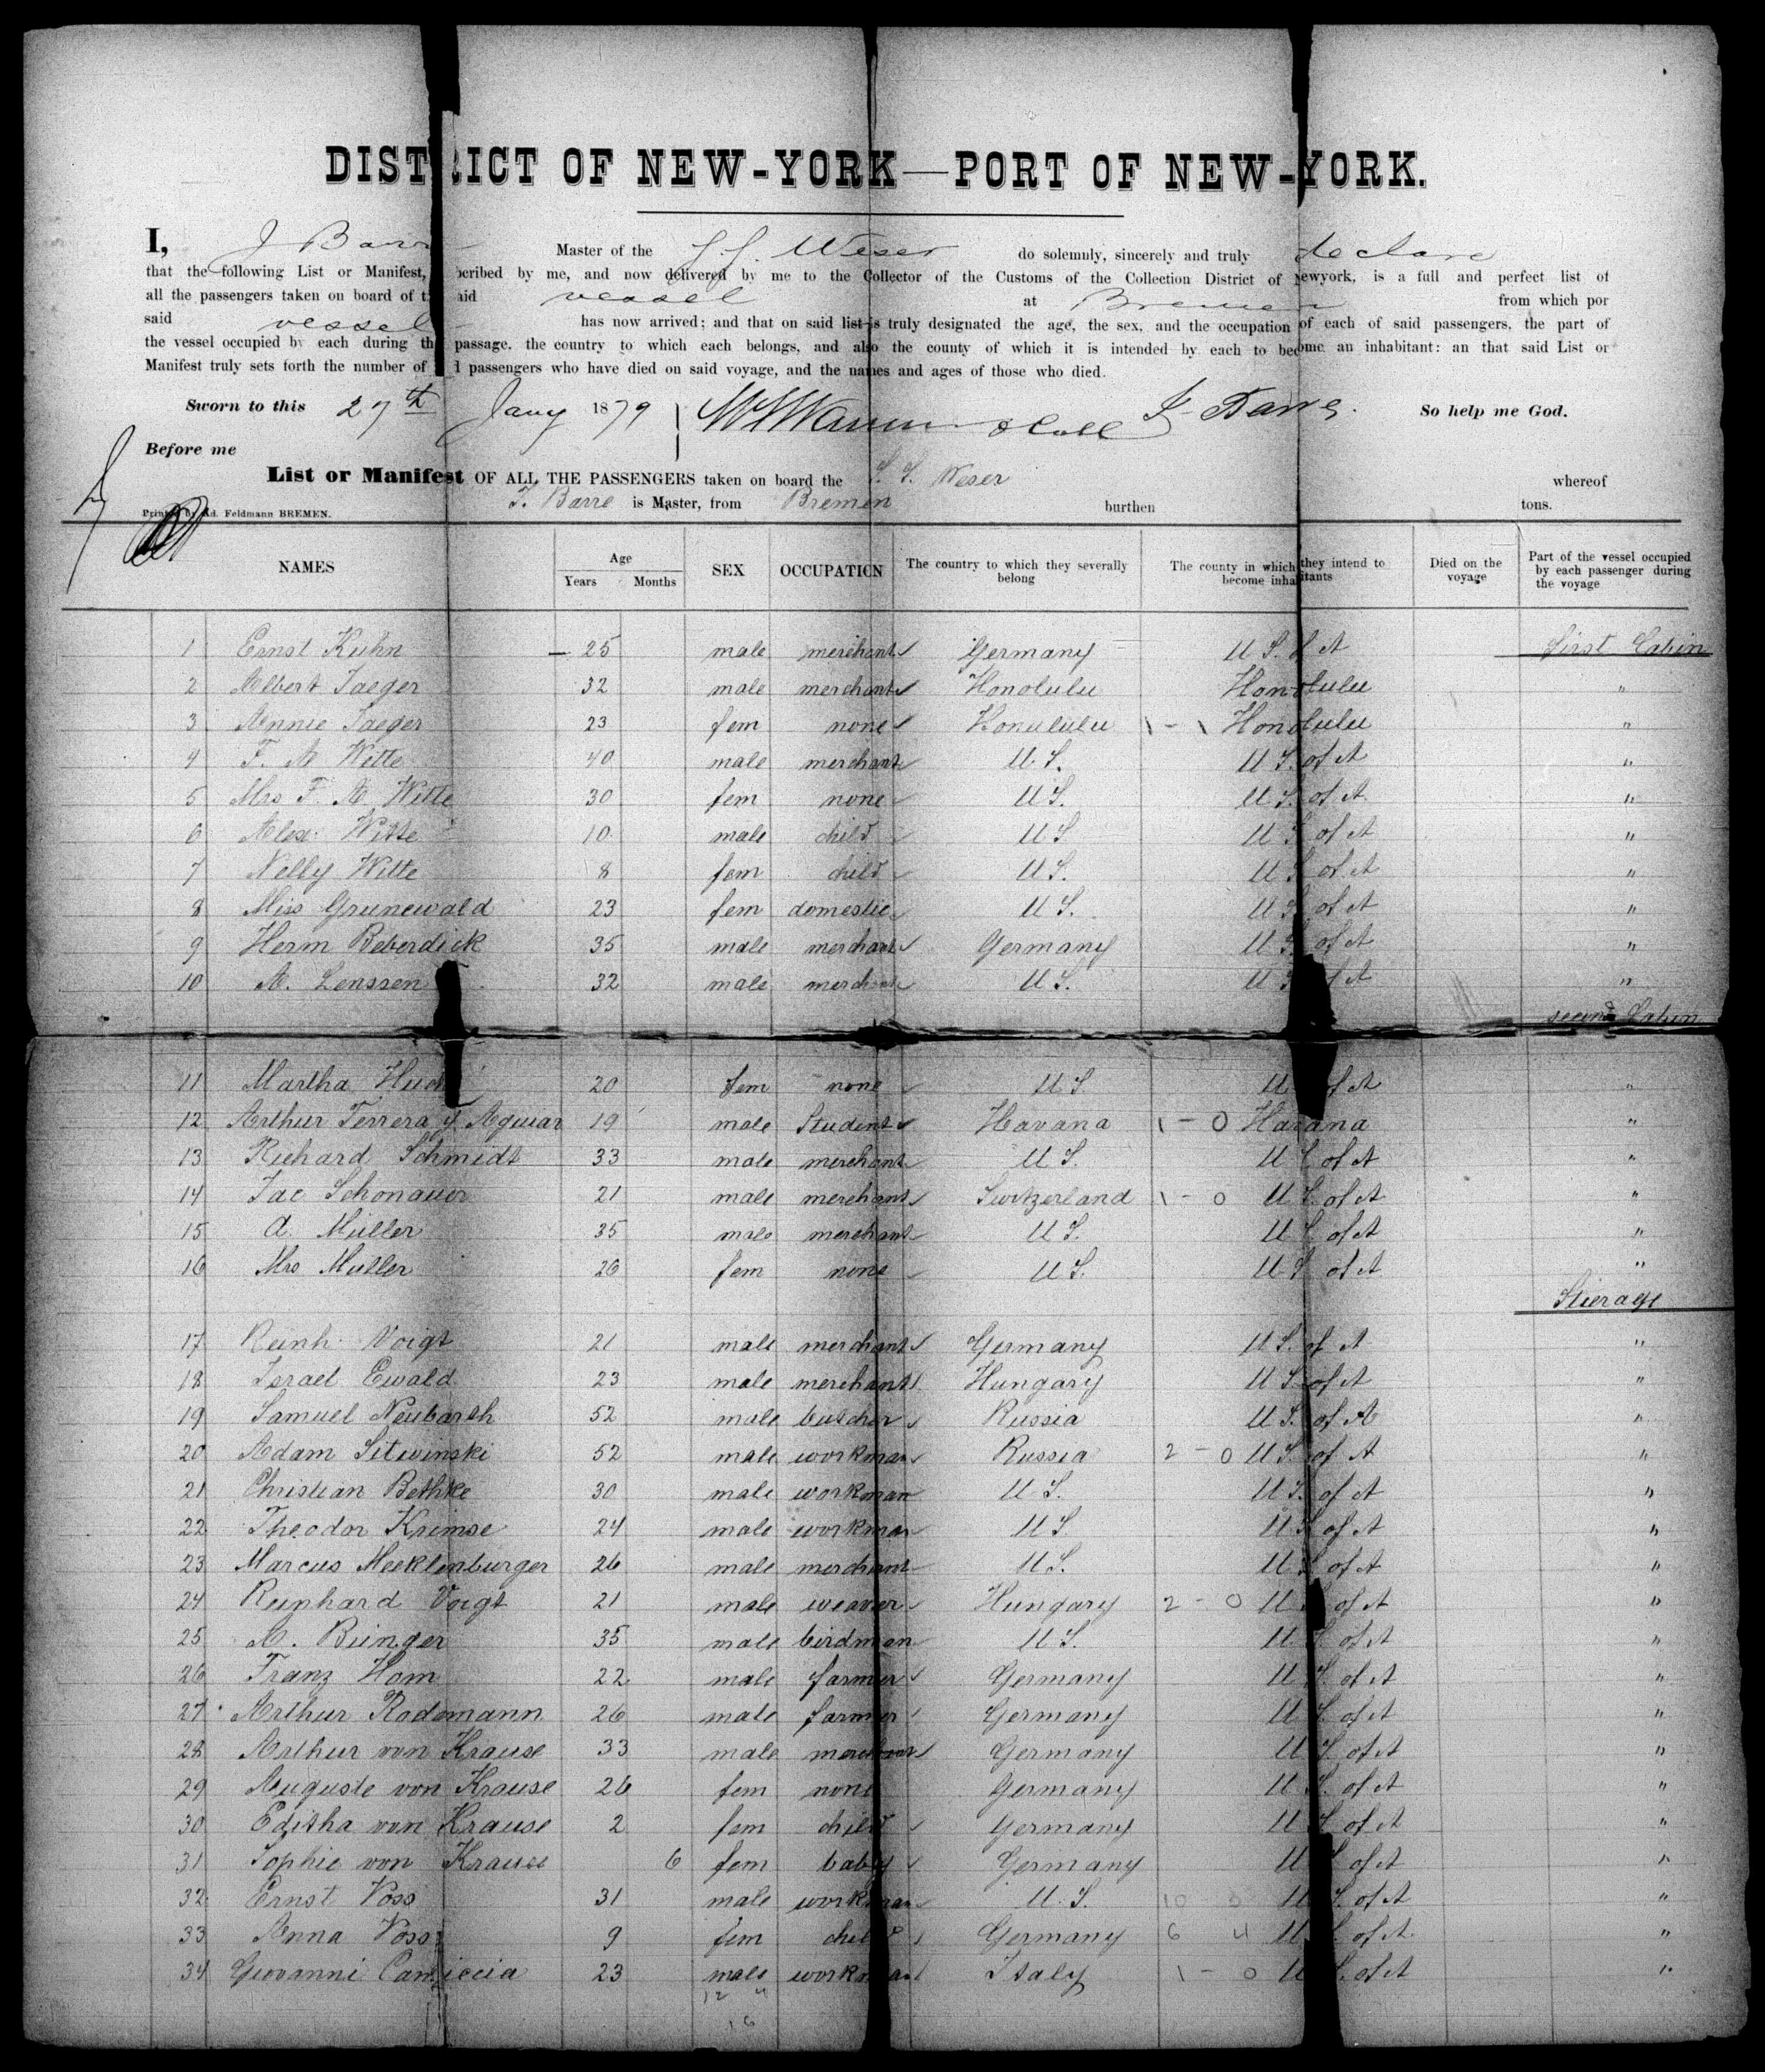 DISTRICT OF NEW-YORK—PORT OF NEW-YORK.
I, J Barre Master of the S.S. Weser do solemnly, sincerely and truly declare
that the following List or Manifest, scribed by me, and now delivered by me to the Collector of the Customs of the Collection District of Newyork, is a full and perfect list of
all the passengers taken on board of t aid vessel at Bremen from which por
said vessel has now arrived; and that on said list is truly designated the age, the sex, and the occupation of each of said passengers, the part of
the vessel occupied by each during the passage, the country to which each belongs, and also the county of which it is intended by each to become an inhabitant: an that said List or
Manifest truly sets forth the number of l passengers who have died on said voyage, and the names and ages of those who died.
Sworn to this 27th Jany 1879 F. Barre. So help me God.
Before me
List or Manifest OF ALL THE PASSENGERS taken on board the S. S. Weser whereof
F. Barre is Master, from Bremen burthen tons.
Printed by Ad. Feldmann BREMEN.
NAMES Age Years Months SEX OCCUPATION The country to which they severally belong The county in which they intend to become inhabitants Died on the voyage Part of the vessel occupied by each passenger during the voyage
1 Ernst Kuhn — 25 male merchant Germany U S. of A first Cabin
2 Albert Jaeger 32 male merchant Honolulu Honolulu "
3 Annie Jaeger 23 fem none Honululu 1 - 1 Honolulu "
4 F. A Witte 40 male merchant U. S. U S. of A "
5 Mrs F. A Witte 30 fem none U S. U S. of A. "
6 Alex: Witte 10 male child U S U S of A "
7 Nelly Witte 8 fem child U S. U S of A "
8 Miss Grunewald 23 fem domestic U S. U S of A "
9 Herm Beberdick 35 male merchant Germany U S. of A "
10 A. Lenssen 32 male merchant U S. U S of A "
second Cabin
11 Martha 20 fem none U S U of A "
12 Arthur Ferrera y Aguiar 19 male Student Havana 1 - 0 Havana "
13 Richard Schmidt 33 male merchant U S. U S of A "
14 Jac Schonauer 21 male merchant Switzerland 1 - 0 U S. of A "
15 A. Müller 35 male merchant U S. U S of A "
16 Mrs Muller 26 fem none U S. U S of A "
Stierage
17 Reinh. Voigt 21 male merchant Germany U S. of A "
18 Israel Ewald 23 male merchant Hungary U S. of A "
19 Samuel Neubarth 52 male butcher Russia U S. of A "
20 Adam Litwinski 52 male workman Russia 2 - 0 U S. of A "
21 Christian Bethke 30 male workman U S. U S. of A "
22 Theodor Krimse 24 male workman U S U S of A "
23 Marcus Mecklenburger 26 male merchant U S. U S of A "
24 Reinhard Voigt 21 male weaver Hungary 2 - 0 U S of A "
25 A. Bünger 35 male birdman U S. U S of A "
26 Franz Hom 22 male farmer Germany U S. of A "
27 Arthur Rodemann 26 male farmer Germany U S. of A "
28 Arthur von Krause 33 male merchant Germany U S. of A "
29 Auguste von Krause 26 fem none Germany U S. of A "
30 Editha von Krause 2 fem child Germany U S of A "
31 Sophie von Krause 6 fem baby Germany U S of A "
32 Ernst Voss 31 male workman U. S. 10 3 U S. of A "
33 Anna Voss 9 fem child Germany 6 4 U S. of A. "
34 Giovanni 23 male workman Italy 1 - 0 U S. of A "
12 4
16